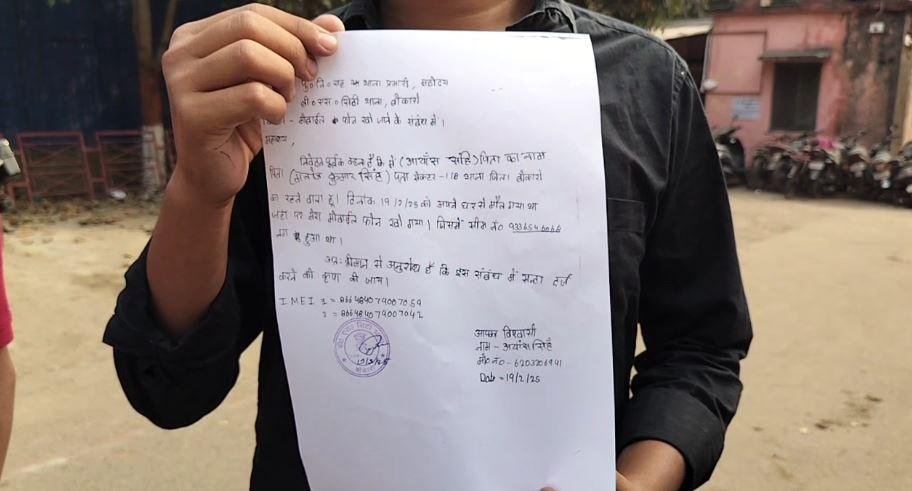 पु० नि० सह थाना प्रभारी, महोदय
बी० एस० सिटी थाना, बोकारो
- मोबाईल फोन खो जाने के संबंध में।
महाशय,
निवेदन पूर्वक कहना है कि मैं (आयांस सिंह) पिता का नाम
पिता कुमार सिंह) पता सेक्टर-11B थाना जिला बोकारो
का रहने वाला हूँ। दिनांक 19/2/25 को अपने घर से गया था
जहां पर मेरा मोबाईल फोन खो गया। जिसमें सीम नं०
लगा हुआ था।
अतः श्रीमान से अनुरोध है कि इस संबंध में सनहा दर्ज
करने की कृपा की जाय।
IMEI 1 = 866484079007059
2 = 866484079007042
आपका विश्वासी
नाम - अयांस सिंह
मो० नं० - 6203206991
Date - 19/2/25